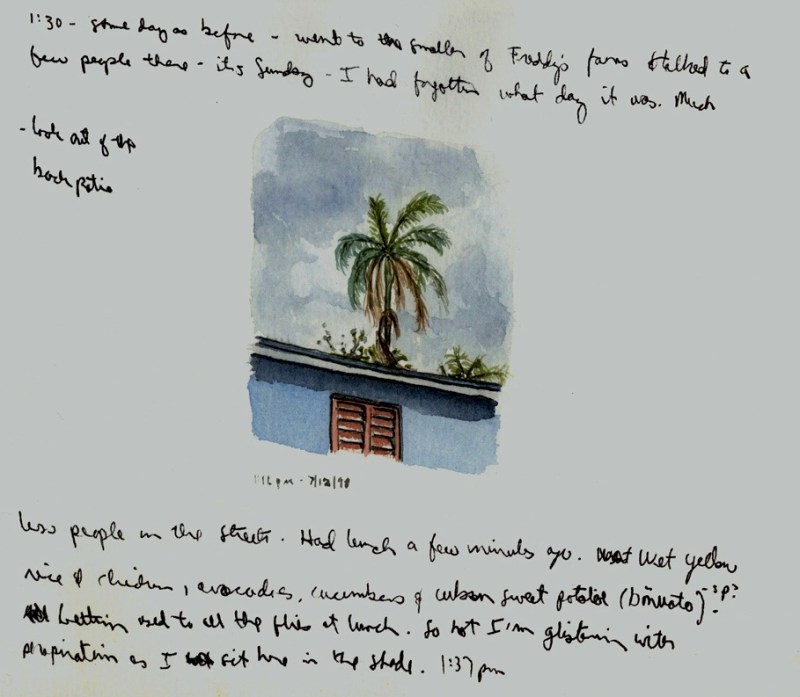 1:30 - same day as before - went to the smaller of Freddy's farms & talked to a
few people there - it's Sunday - I had forgotten what day it was. Much
- look out of the
back patio
pm - 7/12/98
less people in the streets. Had lunch a few minutes ago. Wet yellow
rice & chicken, avocados, cucumbers & cuban sweet potatoe (boniato) - sp?
Getting used to all the flies at lunch. So hot I'm glistening with
perspiration as I sit here in the shade. 1:37 pm